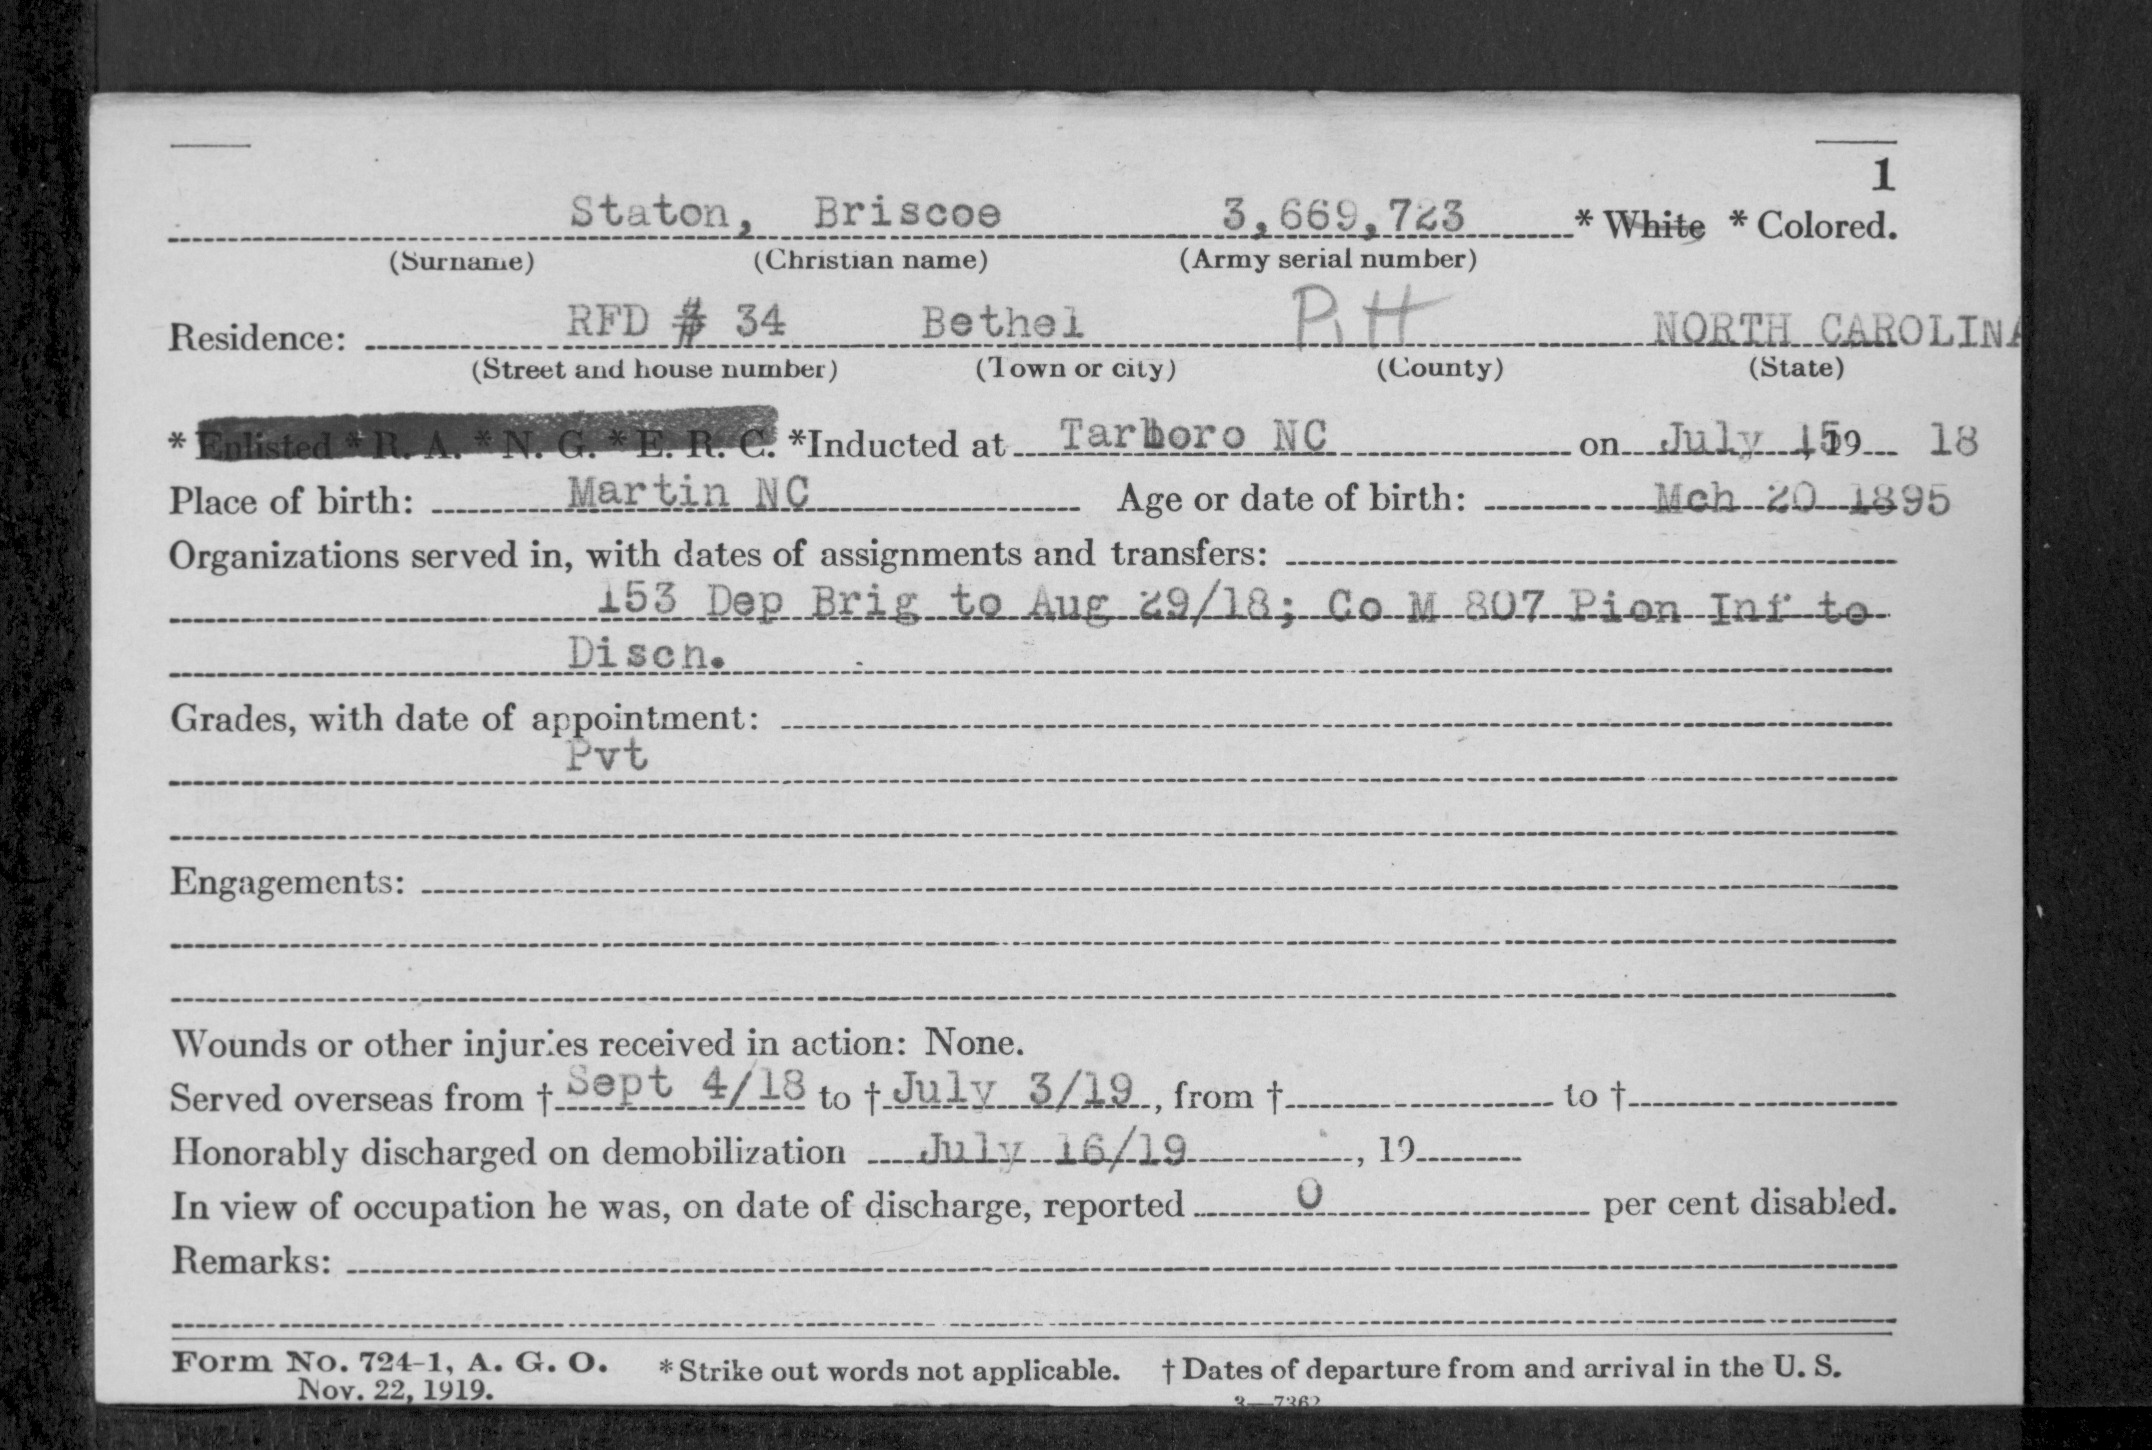 1
Staton, Briscoe 3,669,723 * White * Colored.
(Surname) (Christian name) (Army serial number)
Residence: RFD # 34 Bethel Pitt NORTH CAROLINA
(Street and house number) (Town or city) (County) (State)
* Enlisted * R. A. * N. G. * E. R. C. *Inducted at Tarboro NC on July 15, 19 18
Place of birth: Martin NC Age or date of birth: Mch 20 1895
Organizations served in, with dates of assignments and transfers:
153 Dep Brig to Aug 29/18; Co M 807 Pion Inf to
Disch.
Grades, with date of appointment:
Pvt
Engagements:
Wounds or other injuries received in action: None.
Served overseas from † Sept 4/18 to † July 3/19, from † to †
Honorably discharged on demobilization July 16/19, 19
In view of occupation he was, on date of discharge, reported 0 per cent disabled.
Remarks:
Form No. 724-1, A. G. O. * Strike out words not applicable. † Dates of departure from and arrival in the U. S.
Nov. 22, 1919.
3—7362